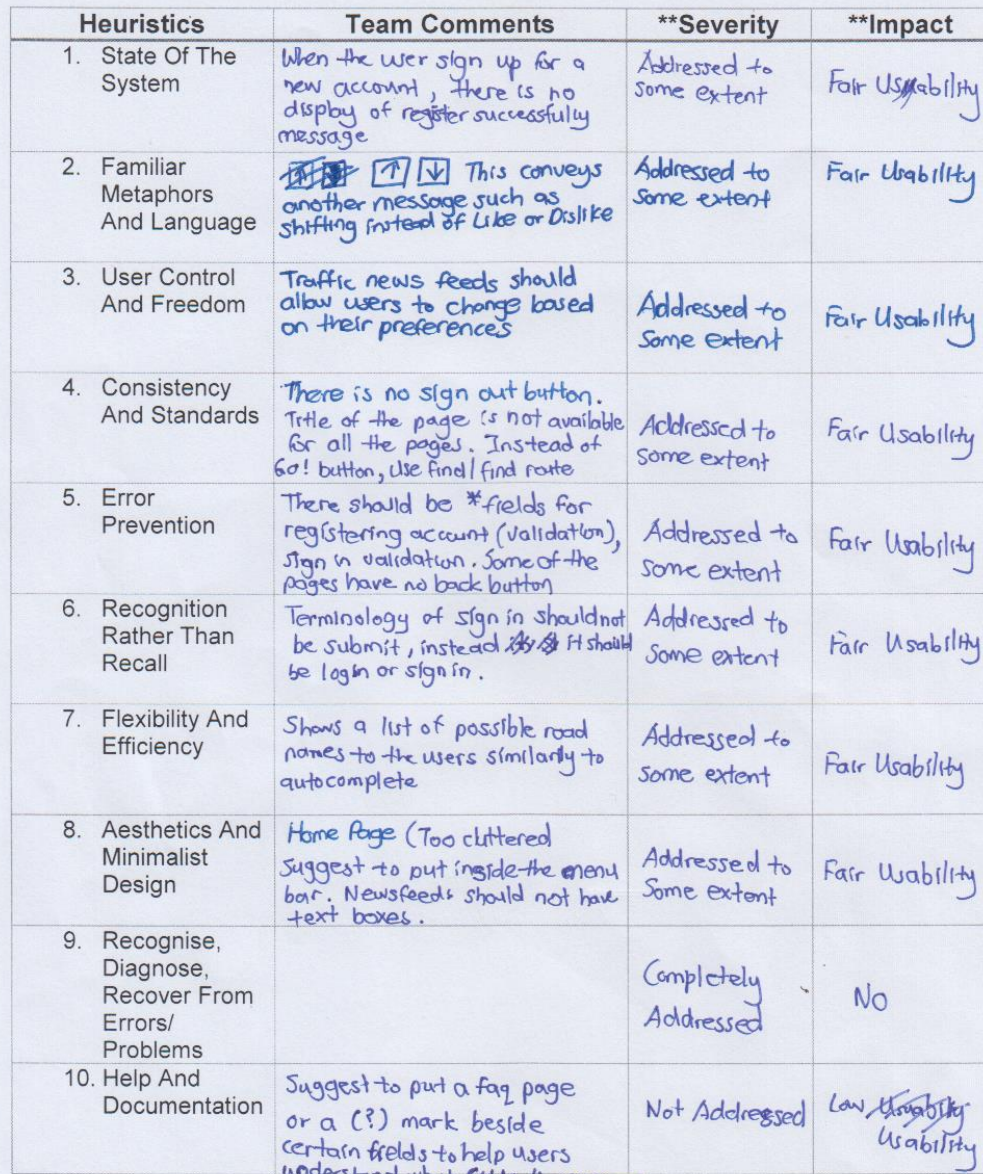 Heuristics Team Comments **Severity **Impact
1. State Of The
System
When the user sign up for a
new account, there is no
display of register successfully
message
Addressed to
some extent
Fair Usability
2. Familiar
Metaphors
And Language
↑ ↓ This conveys
another message such as
shifting instead of Like or Dislike
Addressed to
some extent
Fair Usability
3. User Control
And Freedom
Traffic news feeds should
allow users to change based
on their preferences
Addressed to
some extent
Fair Usability
4. Consistency
And Standards
There is no sign out button.
Title of the page is not available
for all the pages. Instead of
Go! button, use find/find route
Addressed to
some extent
Fair Usability
5. Error
Prevention
There should be *fields for
registering account (validation),
sign in validation. Some of the
pages have no back button
Addressed to
some extent
Fair Usability
6. Recognition
Rather Than
Recall
Terminology of sign in should not
be submit, instead it should
be login or sign in.
Addressed to
some extent
Fair Usability
7. Flexibility And
Efficiency
Shows a list of possible road
names to the users similarly to
autocomplete
Addressed to
some extent
Fair Usability
8. Aesthetics And
Minimalist
Design
Home Page (Too cluttered
Suggest to put inside the menu
bar. Newsfeeds should not have
text boxes.
Addressed to
some extent
Fair Usability
9. Recognise,
Diagnose,
Recover From
Errors/
Problems
Completely
Addressed
No
10. Help And
Documentation
Suggest to put a faq page
or a (?) mark beside
certain fields to help users
understand what
Not Addressed
Low
Usability